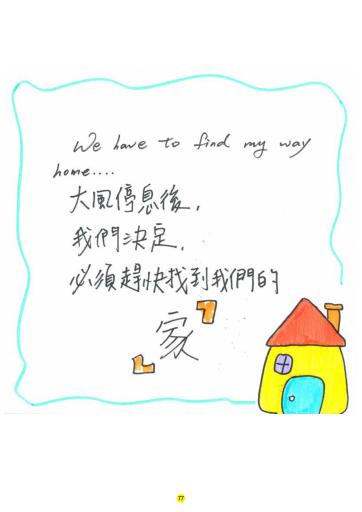 We have to find my way
home....
大風停息後,
我們決定,
必須趕快找到我們的
『家』
77